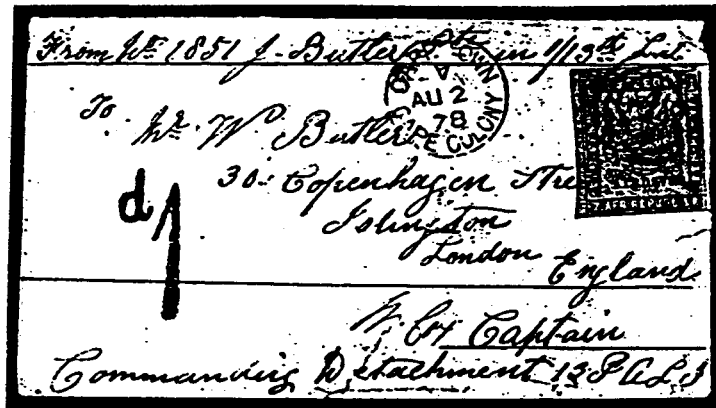 From No 1851 J. Butler Pte in 1/13th Inf
CAPE TOWN
A
AU 2
78
CAPE COLONY
To Mr W Butler
30 Copenhagen Stre
d 1
Islington
London
England
W. Cox Captain
Commanding Detachment 13 P A L I